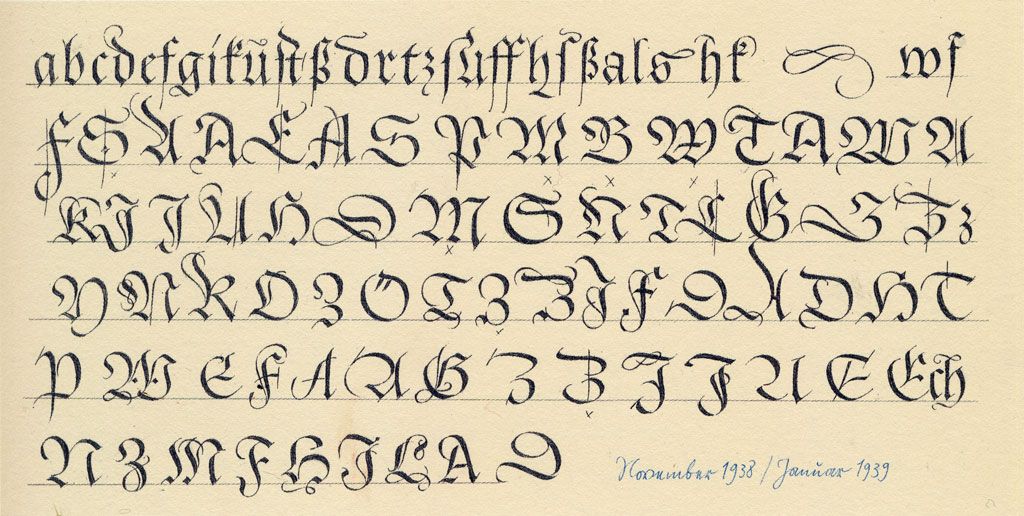 abcdefgikũſtpdrtzſuffhſßals hk wſ
FSAAEAS PMBWTAWA
KIJUHDMSNTCGSTz
YNROZOTZZIFDADHT
PWEFAAG ZZIJUEECh
NZMFHILAD November 1938 / Januar 1939